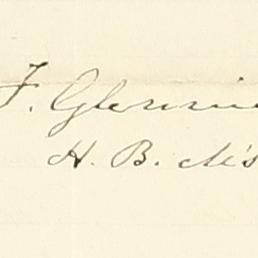 F. Glennie
H. B. M's